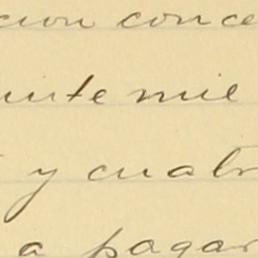 cion conce
uinte mil
y cuatr
a pagar